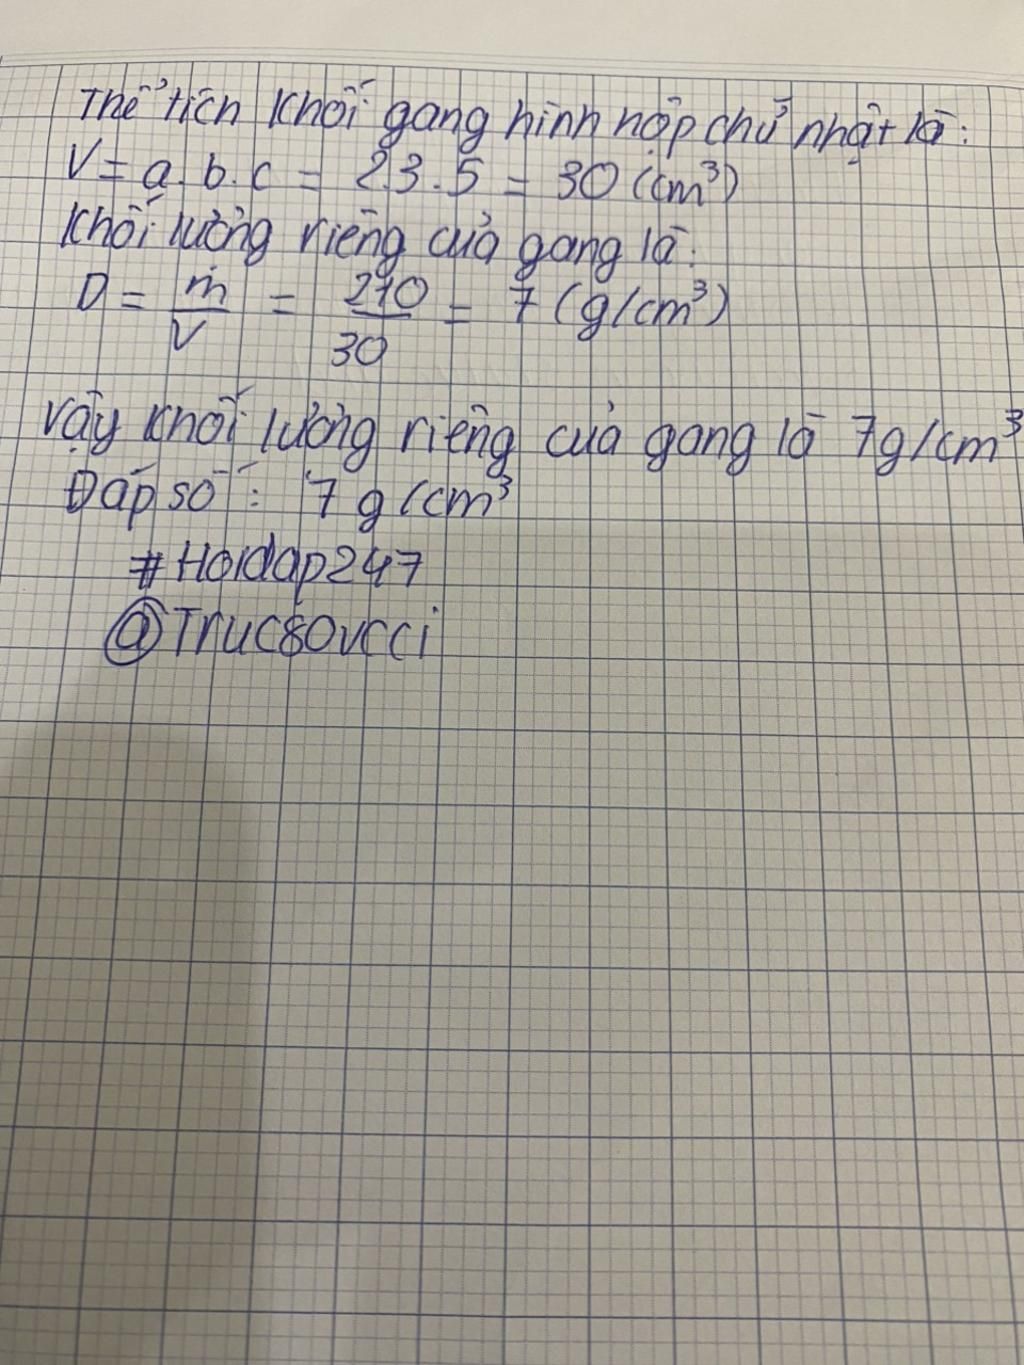 Thể tích khối gang hình hộp chữ nhật là:
V = a.b.c = 2.3.5 = 30 (cm³)
Khối lượng riêng của gang là:
D = m/V = 210/30 = 7 (g/cm³)
Vậy khối lượng riêng của gang là 7g/cm³
Đáp số: 7 g/cm³
#Hoidap247
@Truc8ovcci